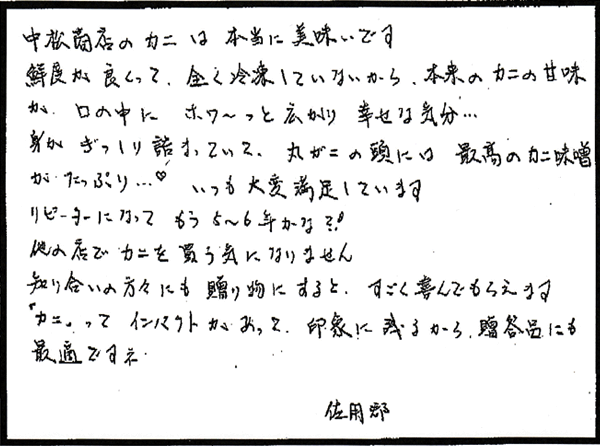 中松商店のカニは本当に美味いです
鮮度が良くって、全く冷凍していないから、本来のカニの甘味
が、口の中に ホワ～っと広がり 幸せな気分…
身が ぎっしり詰まっていて、丸ガニの頭には 最高のカニ味噌
がたっぷり…♡ いつも大変満足しています
リピーターになって もう5～6年かな?!
他の店でカニを買う気になりません
知り合いの方々にも贈り物にすると、すごく喜んでもらえます
「カニ」って インパクトがあって、印象に残るから、贈答品にも
最適ですネ
佐用郡